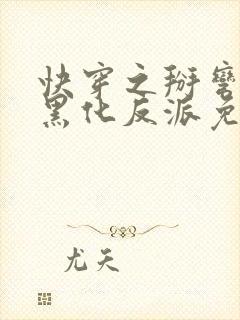 快穿之掰弯
黑化反派免
尤天